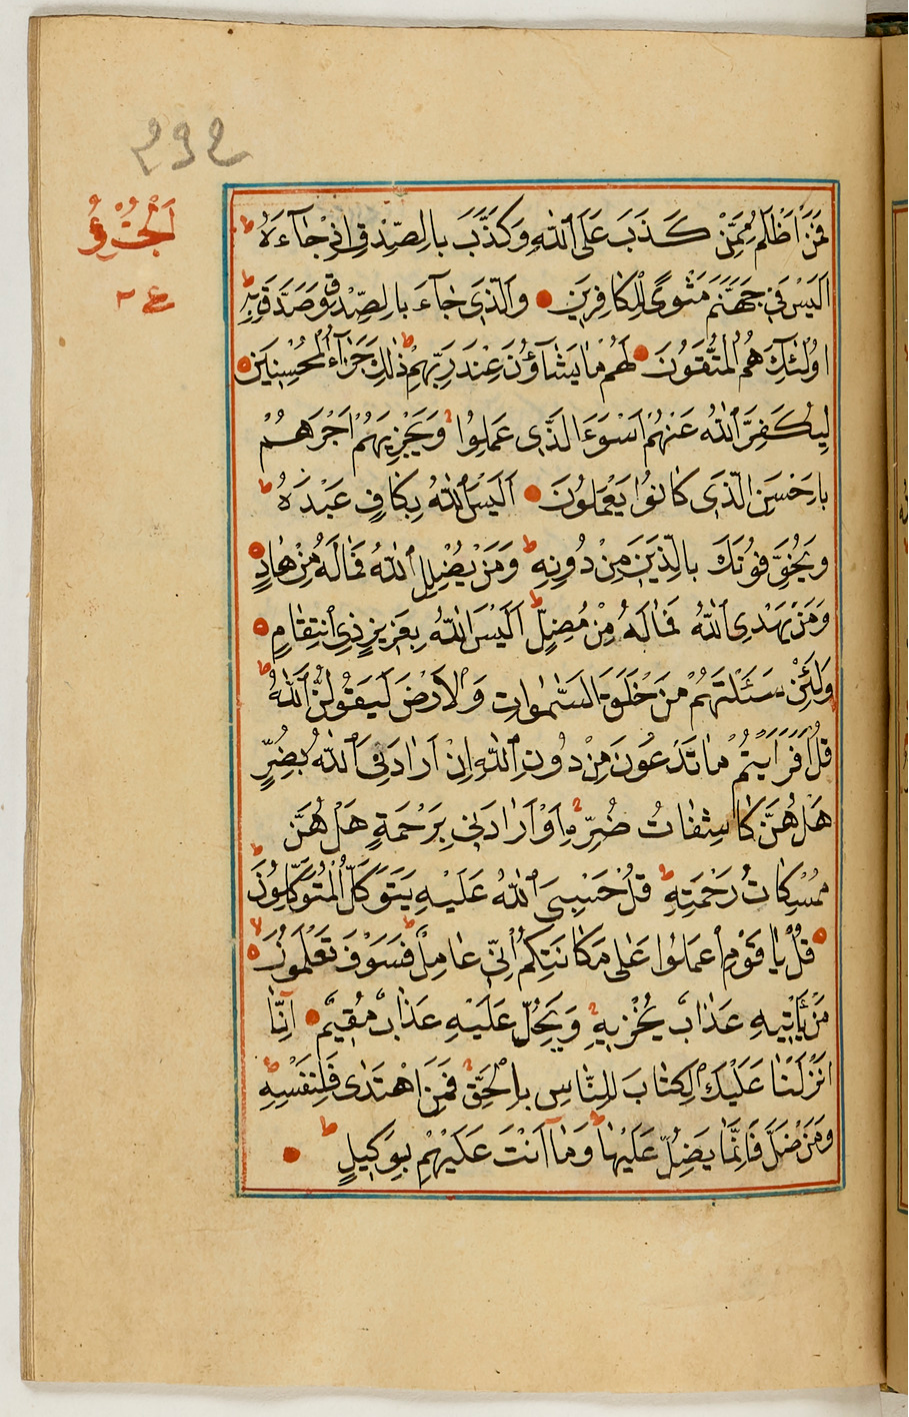 ٤٩٢
اَلْجُزْؤُ
٢٤
فَمَنْ اَظْلَمُ مِمَّنْ كَذَبَ عَلَى اللّٰهِ وَكَذَّبَ بِالصِّدْقِ اِذْ جَآءَهُ ط
اَلَيْسَ فِى جَهَنَّمَ مَثْوًى لِلْكَافِرِينَ وَالَّذِى جَآءَ بِالصِّدْقِ وَصَدَّقَ بِهِ
اُولٰئِكَ هُمُ الْمُتَّقُونَ لَهُمْ مَا يَشَآؤُنَ عِنْدَ رَبِّهِمْ ط ذٰلِكَ جَزٰآءُ الْمُحْسِنِينَ
لِيُكَفِّرَ اللّٰهُ عَنْهُمْ اَسْوَءَ الَّذِى عَمِلُوا وَيَجْزِيَهُمْ اَجْرَهُمْ
بِاَحْسَنِ الَّذِى كَانُوا يَعْمَلُونَ اَلَيْسَ اللّٰهُ بِكَافٍ عَبْدَهُ ط
وَيُخَوِّفُونَكَ بِالَّذِينَ مِنْ دُونِهِ ط وَمَنْ يُضْلِلِ اللّٰهُ فَمَالَهُ مِنْ هَادٍ
وَمَنْ يَهْدِى اللّٰهُ فَمَالَهُ مِنْ مُضِلٍّ ط اَلَيْسَ اللّٰهُ بِعَزِيزٍ ذِى انْتِقَامٍ
وَلَئِنْ سَئَلْتَهُمْ مَنْ خَلَقَ السَّمٰوَاتِ وَالْاَرْضَ لَيَقُولُنَّ اللّٰهُ ط
قُلْ اَفَرَاَيْتُمْ مَا تَدْعُونَ مِنْ دُونِ اللّٰهِ اِنْ اَرَادَنِىَ اللّٰهُ بِضُرٍّ
هَلْ هُنَّ كَاشِفَاتُ ضُرِّهِ اَوْ اَرَادَنِى بِرَحْمَةٍ هَلْ هُنَّ
مُمْسِكَاتُ رَحْمَتِهِ ط قُلْ حَسْبِىَ اللّٰهُ عَلَيْهِ يَتَوَكَّلُ الْمُتَوَكِّلُونَ
قُلْ يَا قَوْمِ اعْمَلُوا عَلٰى مَكَانَتِكُمْ اِنِّى عَامِلٌ ط فَسَوْفَ تَعْلَمُونَ لا
مَنْ يَاْتِيهِ عَذَابٌ يُخْزِيهِ وَيَحِلُّ عَلَيْهِ عَذَابٌ مُقِيمٌ اِنَّا
اَنْزَلْنَا عَلَيْكَ الْكِتَابَ لِلنَّاسِ بِالْحَقِّ فَمَنِ اهْتَدٰى فَلِنَفْسِهِ
وَمَنْ ضَلَّ فَاِنَّمَا يَضِلُّ عَلَيْهَا ط وَمَا اَنْتَ عَلَيْهِمْ بِوَكِيلٍ ط